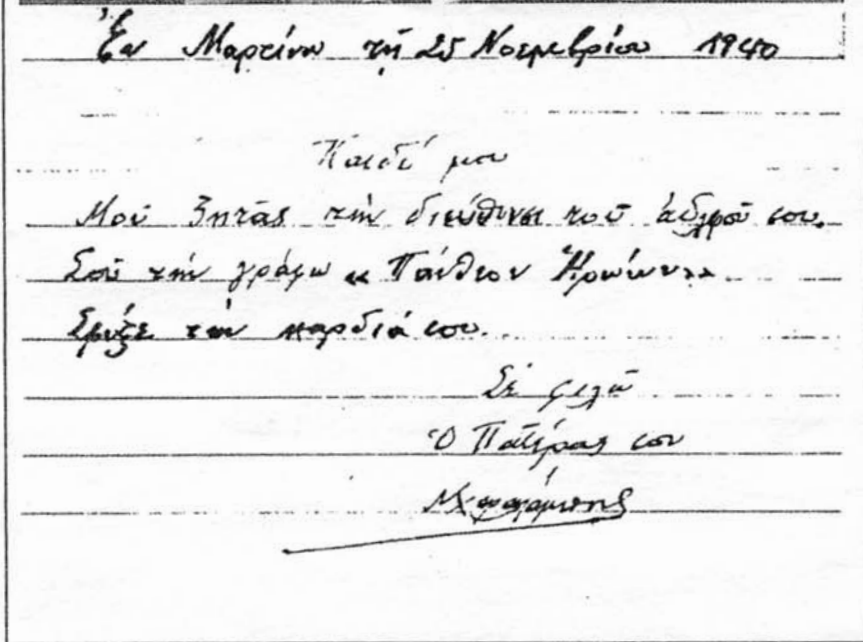 Ἐν Μαρτίνω τῇ 25 Νοεμβρίου 1940
Παιδί μου
Μοῦ ζητᾶς τὴν διεύθυνσι τοῦ ἀδελφοῦ σου.
Σοῦ τὴν γράφω « Πάνθεον Ἡρώων»
Σφίξε τὴν καρδιά σου.
Σὲ φιλῶ
Ὁ Πατέρας σου